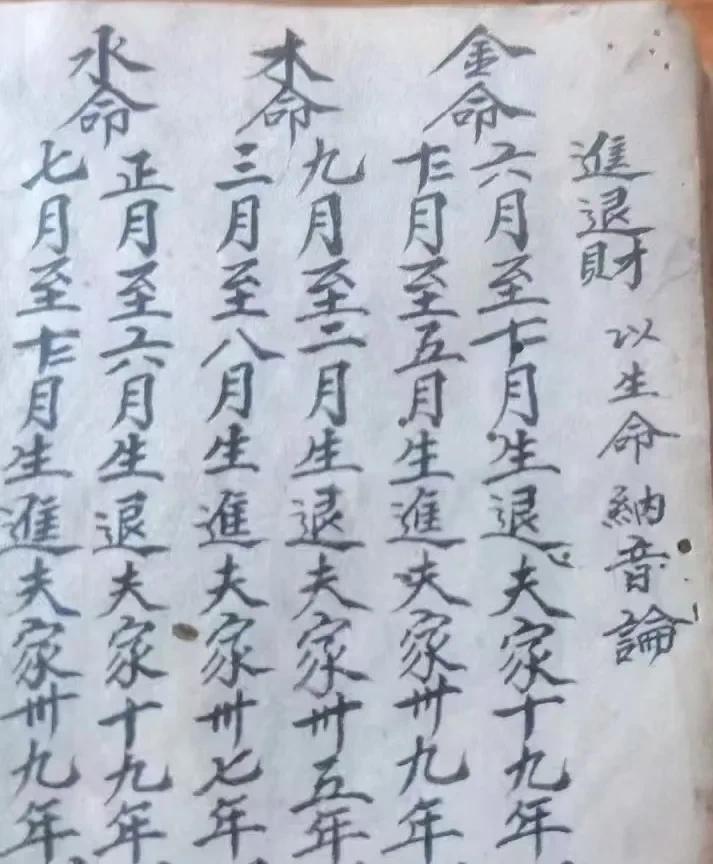 進退財 以生命納音論
金命
六月至十一月生退夫家十九年
十二月至五月生進夫家卅九年
木命
九月至二月生退夫家卅五年
三月至八月生進夫家卅七年
水命
正月至六月生退夫家十九年
七月至十二月生進夫家卅九年